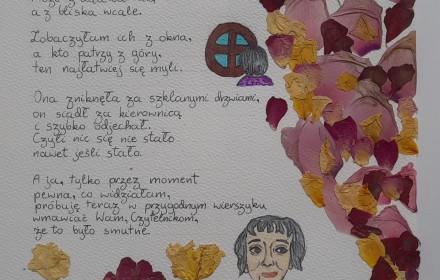 a z bliska wcale.
Zobaczyłam ich z okna,
a kto patrzy z góry,
ten najłatwiej się myli.
Ona zniknęła za szklanymi drzwiami,
on siadł za kierownicą
i szybko odjechał.
Czyli nic się nie stało
nawet jeśli stało.
A ja, tylko przez moment
pewna, co widziałam,
próbuję teraz w przygodnym wierszyku
wmawiać Wam, Czytelnikom,
że to było smutne.